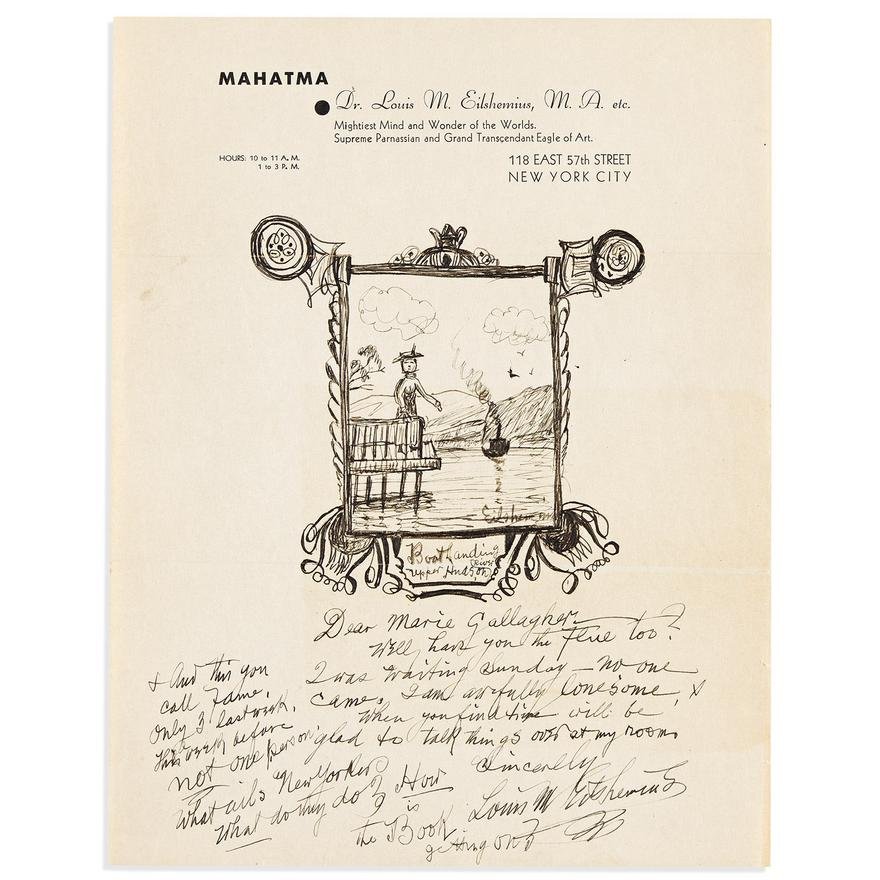 MAHATMA
Dr. Louis M. Eilshemius, M. A. etc.
Mightiest Mind and Wonder of the Worlds.
Supreme Parnassian and Grand Transcendent Eagle of Art.
HOURS: 10 to 11 A. M.
1 to 3 P. M.
118 EAST 57th STREET
NEW YORK CITY
Eilshemius
Boat Landing
upper Hudson
Dear Marie Gallagher
Well, have you the Flue too?
I was waiting Sunday — no one
came. I am awfully lonesome, x
When you find time will be
glad to talk things over at my room.
Sincerely
Louis M Eilshemius
x And this you
call Fame.
Only 3 last week.
This week before
not one person.
What ails New Yorkers
What do they do?
How
is
the Book
getting on?